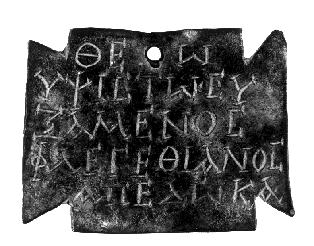 ΘΕ Ω
ΥΨΙΣΤΩΕΥ
ΞΑΜΕΝΟΣ
ΦΛΕΓΕΘΙΑΝΟΣ
ΑΠΕΔΩΚΑ